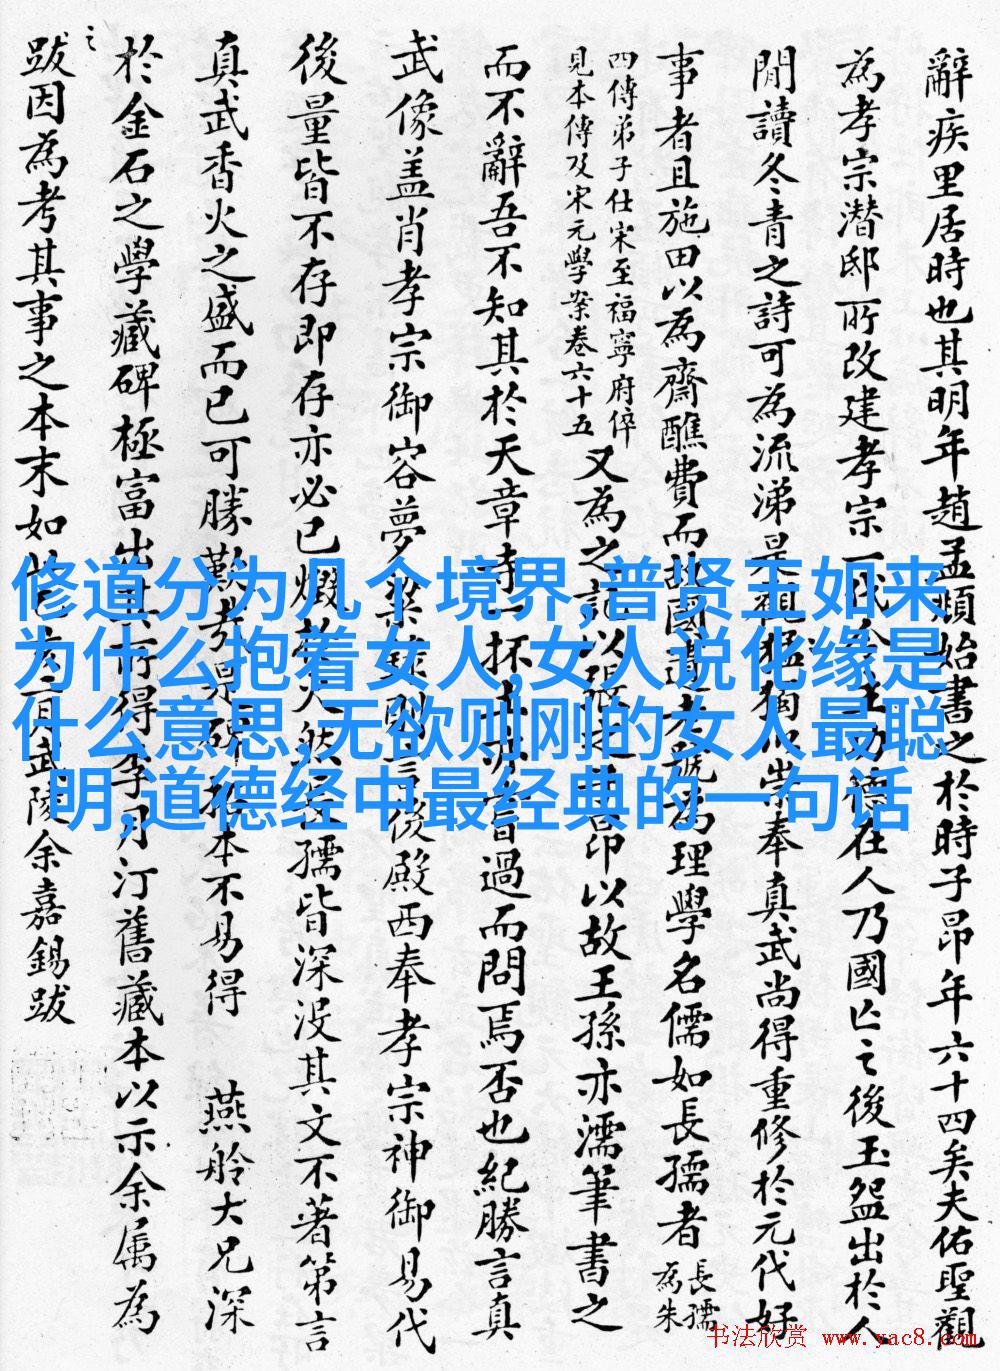 辭疾里居時也其明年趙孟頫始書之於時子昂年六十四矣夫佑聖觀
為孝宗潛邸所改建孝宗一代令主功德在人乃國亡之後玉盌出於人
閒讀冬青之詩可為流涕是觀猶以崇奉真武尚得重修於元代好
事者且施田以為齋醮費而故國遺老號為理學名儒如長孺者
長孺
為朱
四傳弟子仕宋至福寧府倅
見本傳及宋元學案卷六十五
又為之記以張之子昂以故王孫亦濡筆書之
而不辭吾不知其於天章寺一抔亦嘗過而問焉否也紀勝言真
武像盖肖孝宗御容夢粱錄則言後殿西奉孝宗神御易代
後量皆不存即存亦必已燬長孺皆深没其文不著第言
真武香火之盛而已可勝歎考是碑拓本不易得 燕舲大兄深
於金石之學藏碑極富出其所得李月汀舊藏本以示余属為
之
跋因為考其事之本末如此乙亥二月武陵余嘉錫跋
修道分为几个境界,普贤王如来
为什么抱着女人,女人说化缘是
什么意思,无欲则刚的女人最聪
明,道德经中最经典的一句话
书法欣赏 www.yac8.com